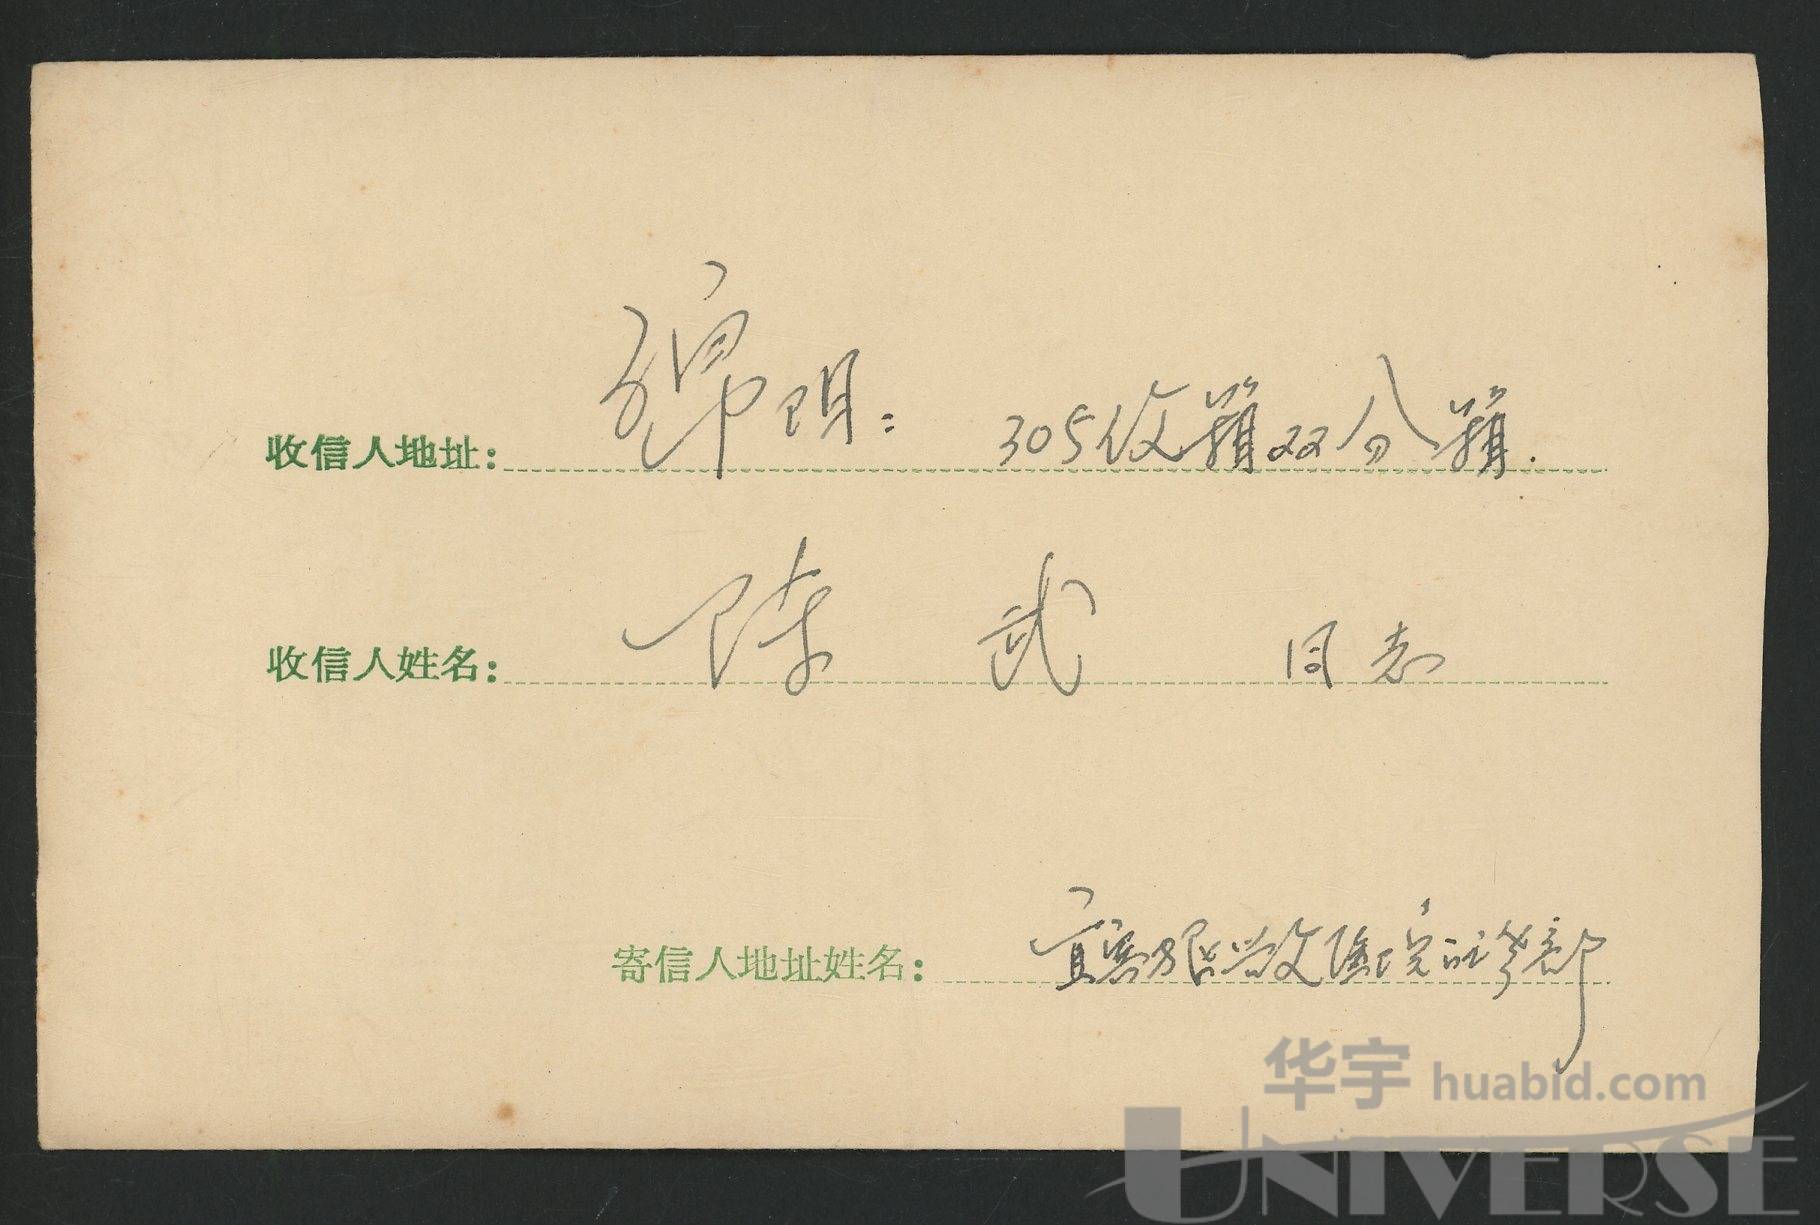 收信人地址： 绵阳： 305信箱双分箱.
收信人姓名： 陈 武 同志
寄信人地址姓名： 部
华宇 huabid.com
UNIVERSE